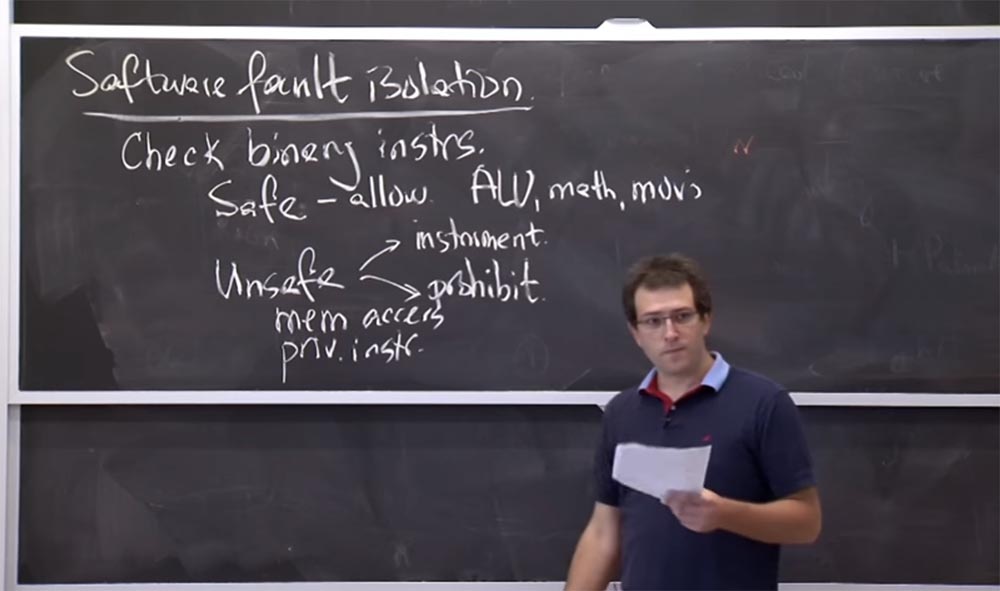 Software fault isolation.
Check binary instrs.
Safe - allow. ALU, math, mov's
Unsafe
instrument.
prohibit.
mem access
priv. instr.